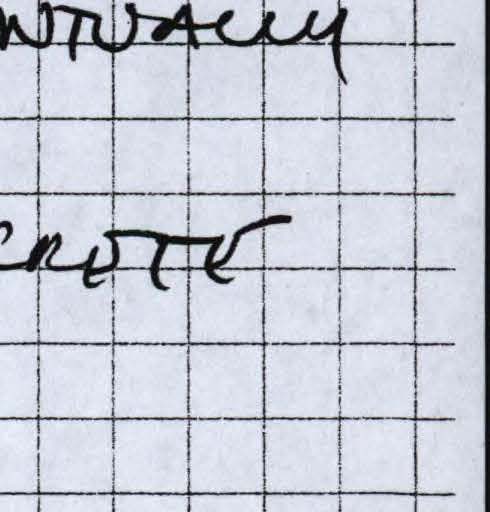 NTUALLY
CRETE